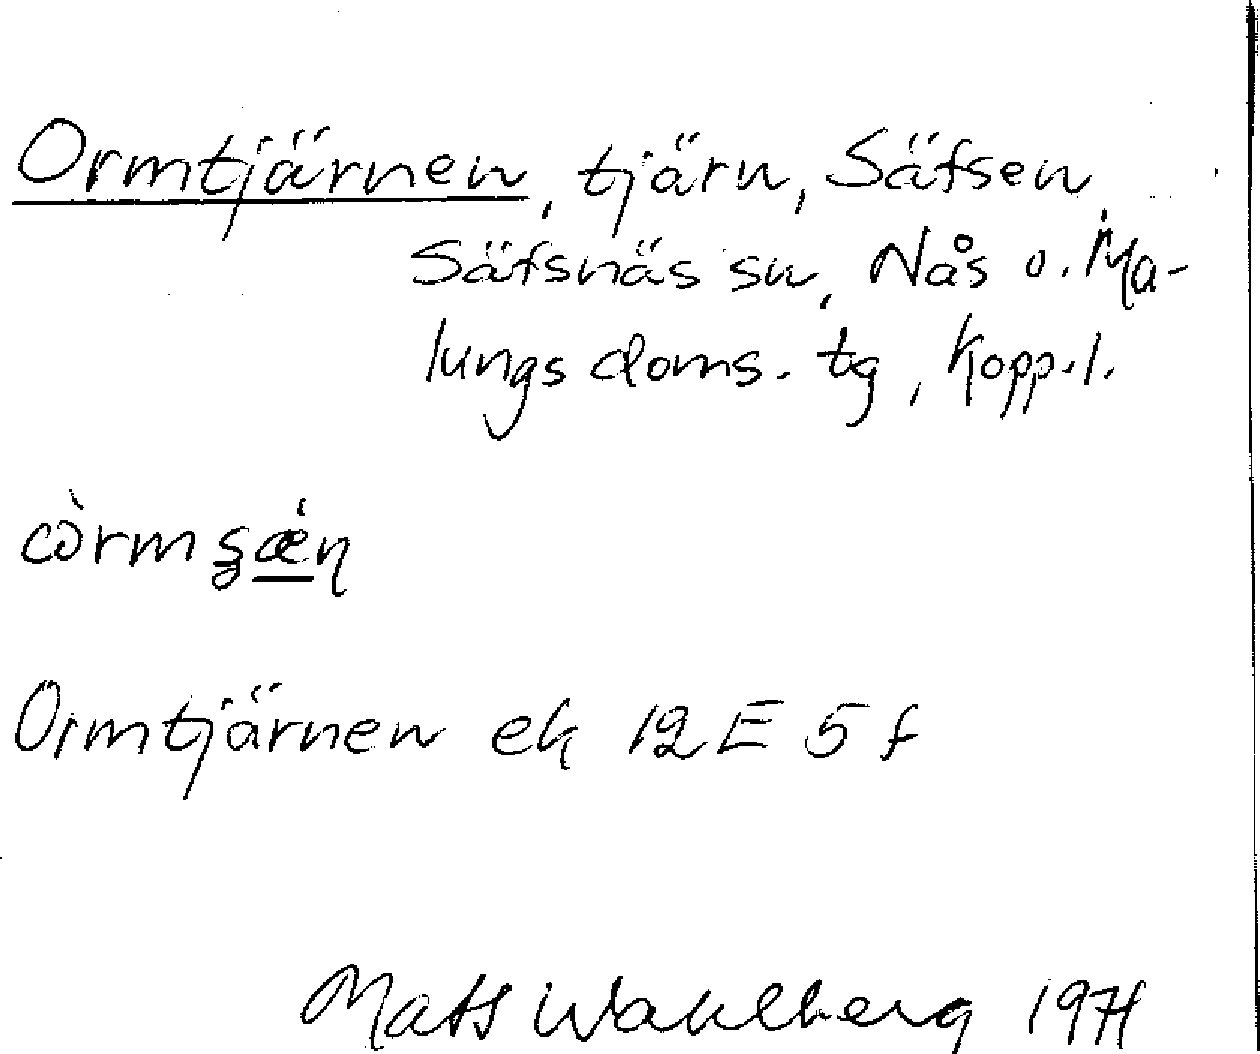 Ormtjärnen, tjärn, Säfsen,
Säfsnäs sn, Nås o. Ma-
lungs doms. tg, Kopp. l.
Ormtjärnen ek 12E 5f
Mats Wahlberg 1971